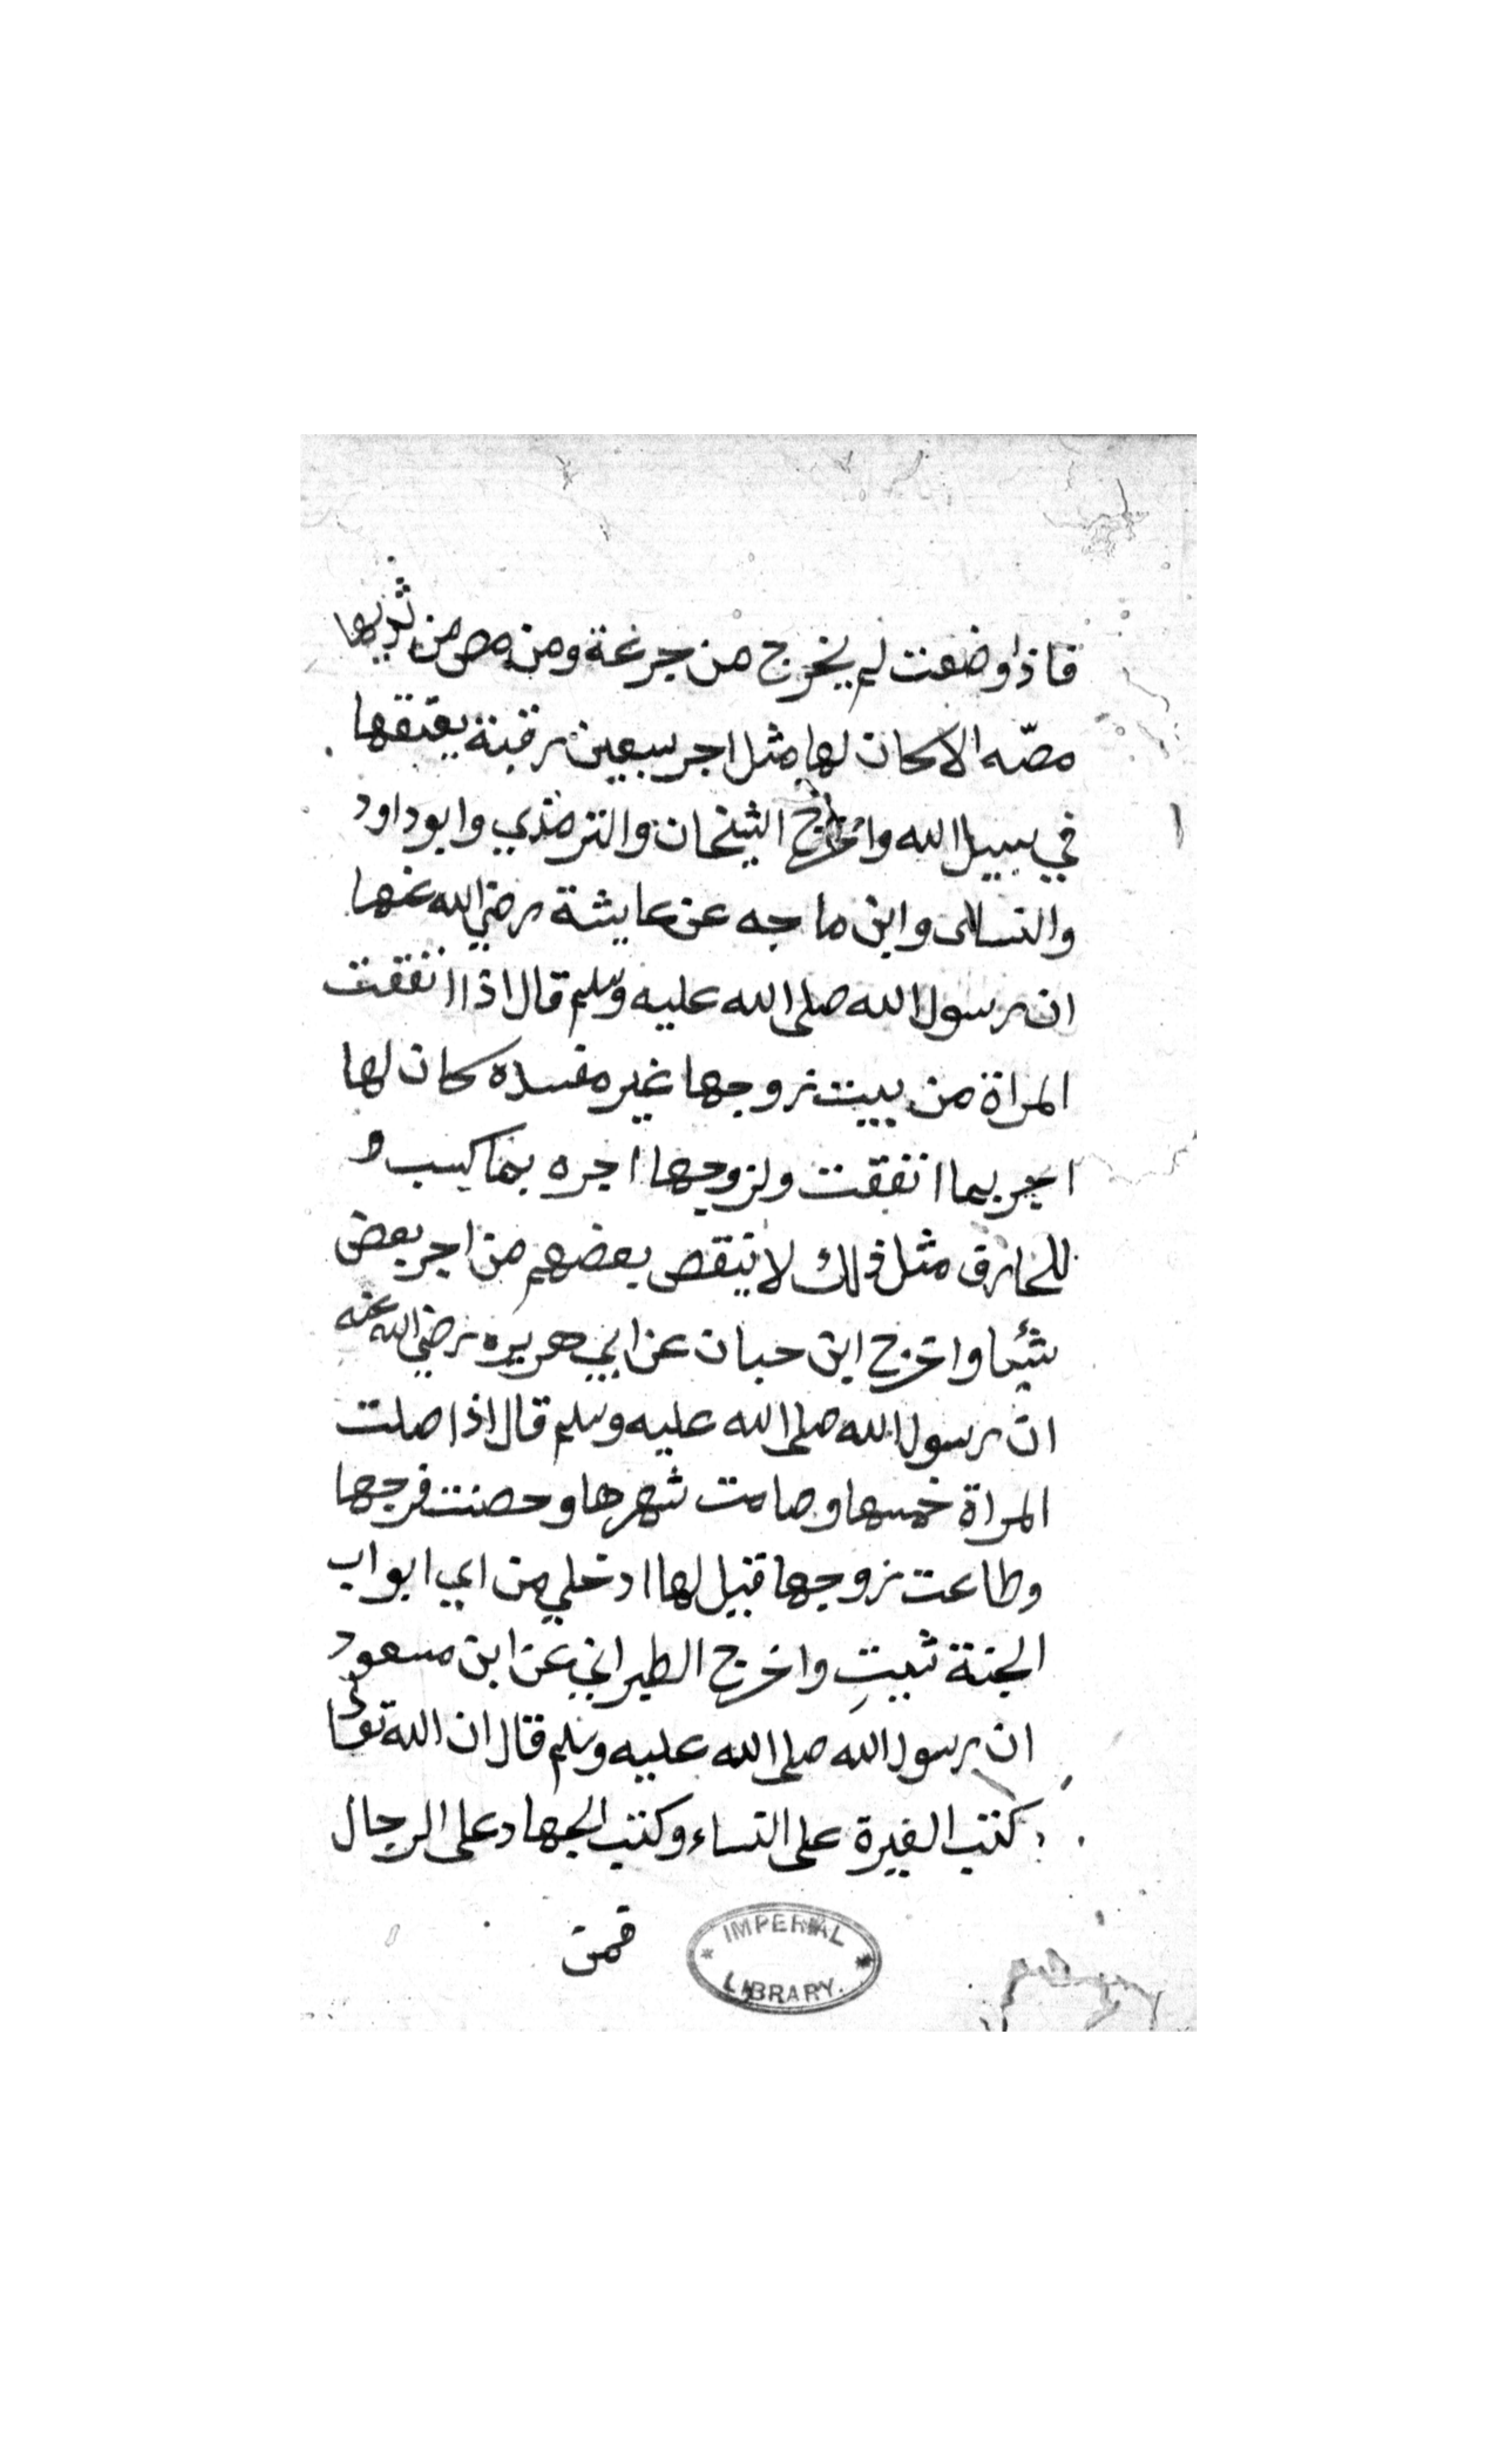 فاذا وضعت لم يخرج من جرعة ومن مص من ثديها
مصّه الا كان لها مثل اجر سبعين رقبة يعتقها
في سبيل الله واخرج الشيخان والترمذي وابوداود
والنسائى وابن ماجه عن عايشة رضي الله عنها
ان رسول الله صلى الله عليه وسلم قال اذا انفقت
المراة من بيت زوجها غير مفسده كان لها
اجر بما انفقت ولزوجها اجره بما كسب و
للخازن مثل ذلك لا ينقص بعضهم من اجر بعض
شيئا واخرج ابن حبان عن ابي هريره رضي الله عنه
ان رسول الله صلى الله عليه وسلم قال اذا صلت
المراة خمسها وصامت شهرها وحصنت فرجها
وطاعت زوجها قيل لها ادخلي من اي ابواب
الجنة شيتِ واخرج الطبراني عن ابن مسعود
ان رسول الله صلى الله عليه وسلم قال ان الله تعالى
كتب الغيرة على النساء وكتب الجهاد على الرجال
فمن
IMPERIAL
LIBRARY.